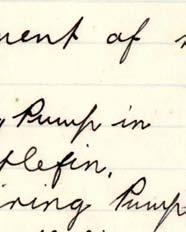 ment of
Pump in
tlefin.
iring Pump